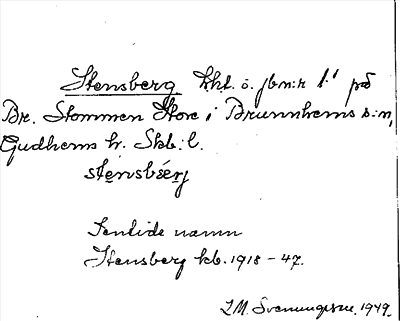 Stensberg kht. o. jbn:r 1:1 på
Br. Stommen Store i Brunnhems s:n,
Gudhems hr. Skb:l.
sténsbæ̀rj
Sentida namn
Stensberg kb. 1918 - 47.
I.M. Svenungsson. 1949.